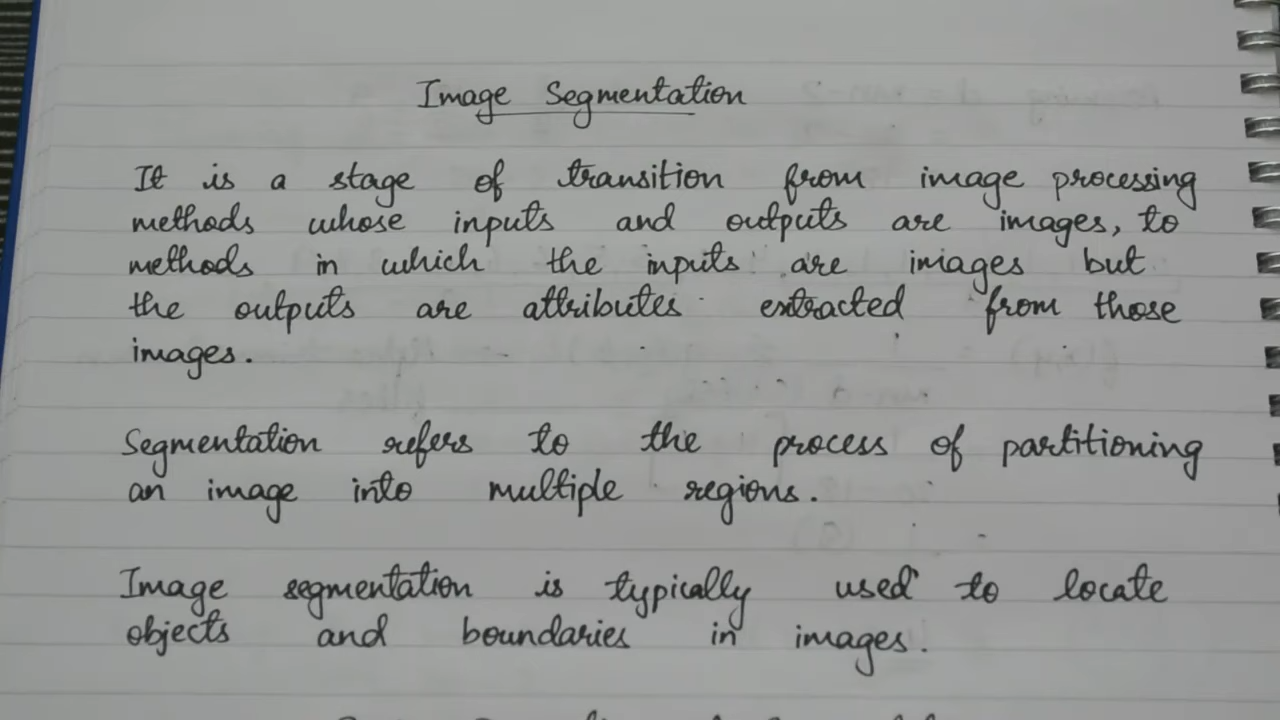 Image Segmentation
It is a stage of transition from image processing
methods whose inputs and outputs are images, to
methods in which the inputs are images but
the outputs are attributes extracted from those
images.
Segmentation refers to the process of partitioning
an image into multiple regions.
Image segmentation is typically used to locate
objects and boundaries in images.